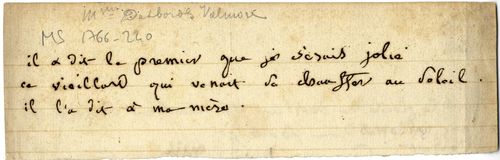 Mme Desbordes Valmore
MS 1766-220
il a dit le premier que je serais jolie
ce vieillard qui venait se chauffer au Soleil.
il l'a dit à ma mère.